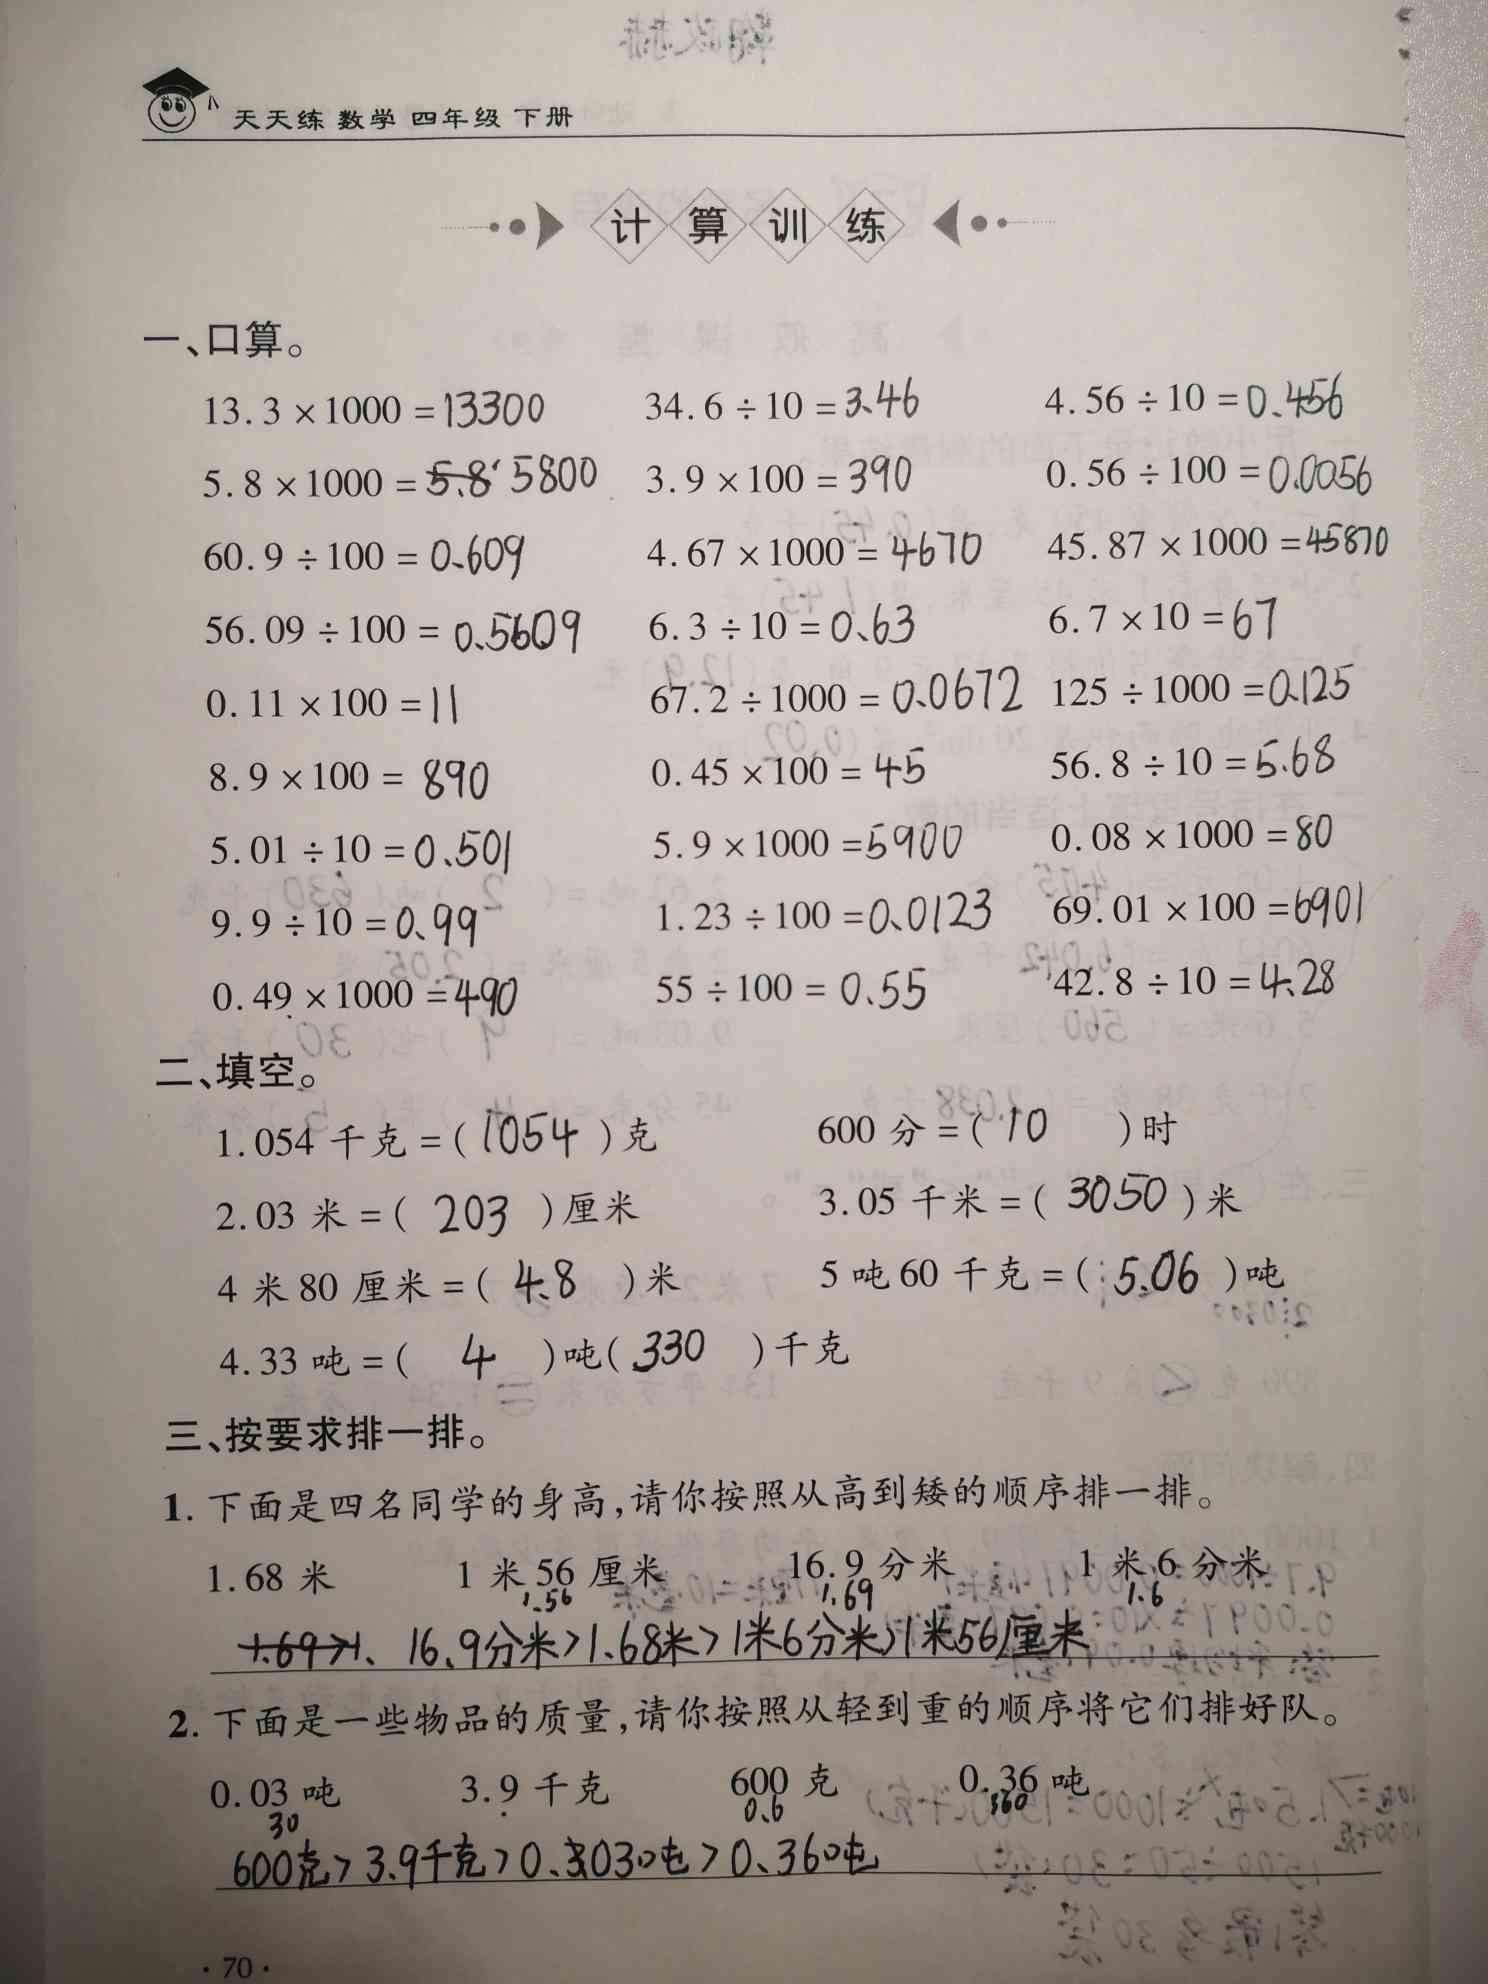 天天练 数学 四年级 下册
计算训练
一、口算。
13.3×1000=13300 34.6÷10=3.46 4.56÷10=0.456
5.8×1000=5.8 5800 3.9×100=390 0.56÷100=0.0056
60.9÷100=0.609 4.67×1000=4670 45.87×1000=45870
56.09÷100=0.5609 6.3÷10=0.63 6.7×10=67
0.11×100=11 67.2÷1000=0.0672 125÷1000=0.125
8.9×100=890 0.45×100=45 56.8÷10=5.68
5.01÷10=0.501 5.9×1000=5900 0.08×1000=80
9.9÷10=0.99 1.23÷100=0.0123 69.01×100=6901
0.49×1000=490 55÷100=0.55 42.8÷10=4.28
二、填空。
1.054 千克=(1054)克 600 分=(10)时
2.03 米=(203)厘米 3.05 千米=(3050)米
4 米 80 厘米=(4.8)米 5 吨 60 千克=(5.06)吨
4.33 吨=(4)吨(330)千克
三、按要求排一排。
1. 下面是四名同学的身高,请你按照从高到矮的顺序排一排。
1.68 米 1 米 56 厘米 16.9 分米 1 米 6 分米
1.56 1.69 1.6
1.69>1、16.9分米>1.68米>1米6分米>1米56厘米
2. 下面是一些物品的质量,请你按照从轻到重的顺序将它们排好队。
0.03 吨 3.9 千克 600 克 0.36 吨
30 0.6 360
600克>3.9千克>0.03吨>0.36吨
·70·